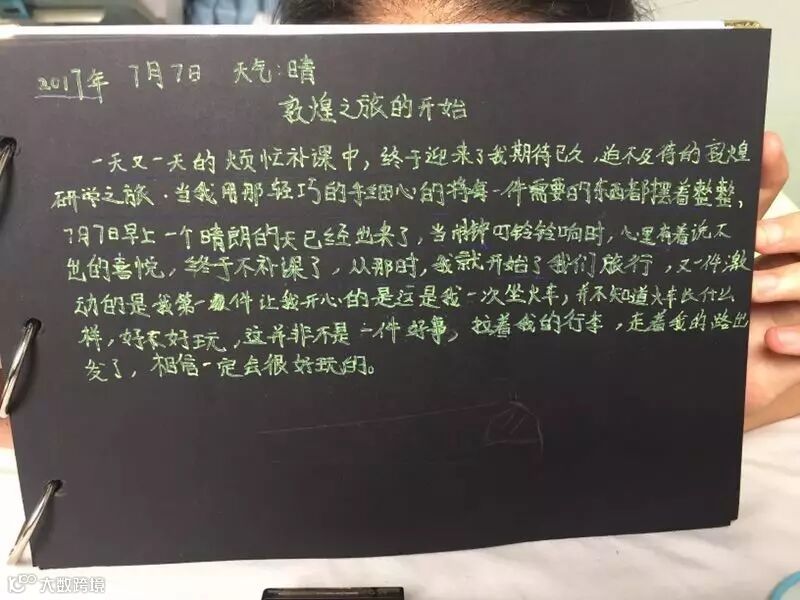 2017年 7月7日 天气:晴
敦煌之旅的开始
一天又一天的烦忙补课中，终于迎来了我期待已久，迫不及待的敦煌
研学之旅．当我用那轻巧的手细心的将每一件需要的东西都摆着整整，
7月7日早上一个晴朗的天已经出来了，当闹钟叮铃铃响时，心里有着说不
出的喜悦，终于不补课了，从那时，我就开始了我们旅行，又一件激
动的是我第一件让我开心的是这是我一次坐火车，并不知道火车长什么
样，好不好玩，这并非不是一件好事，拉着我的行李，走着我的路出
发了，相信一定会很好玩的。
大数跨境